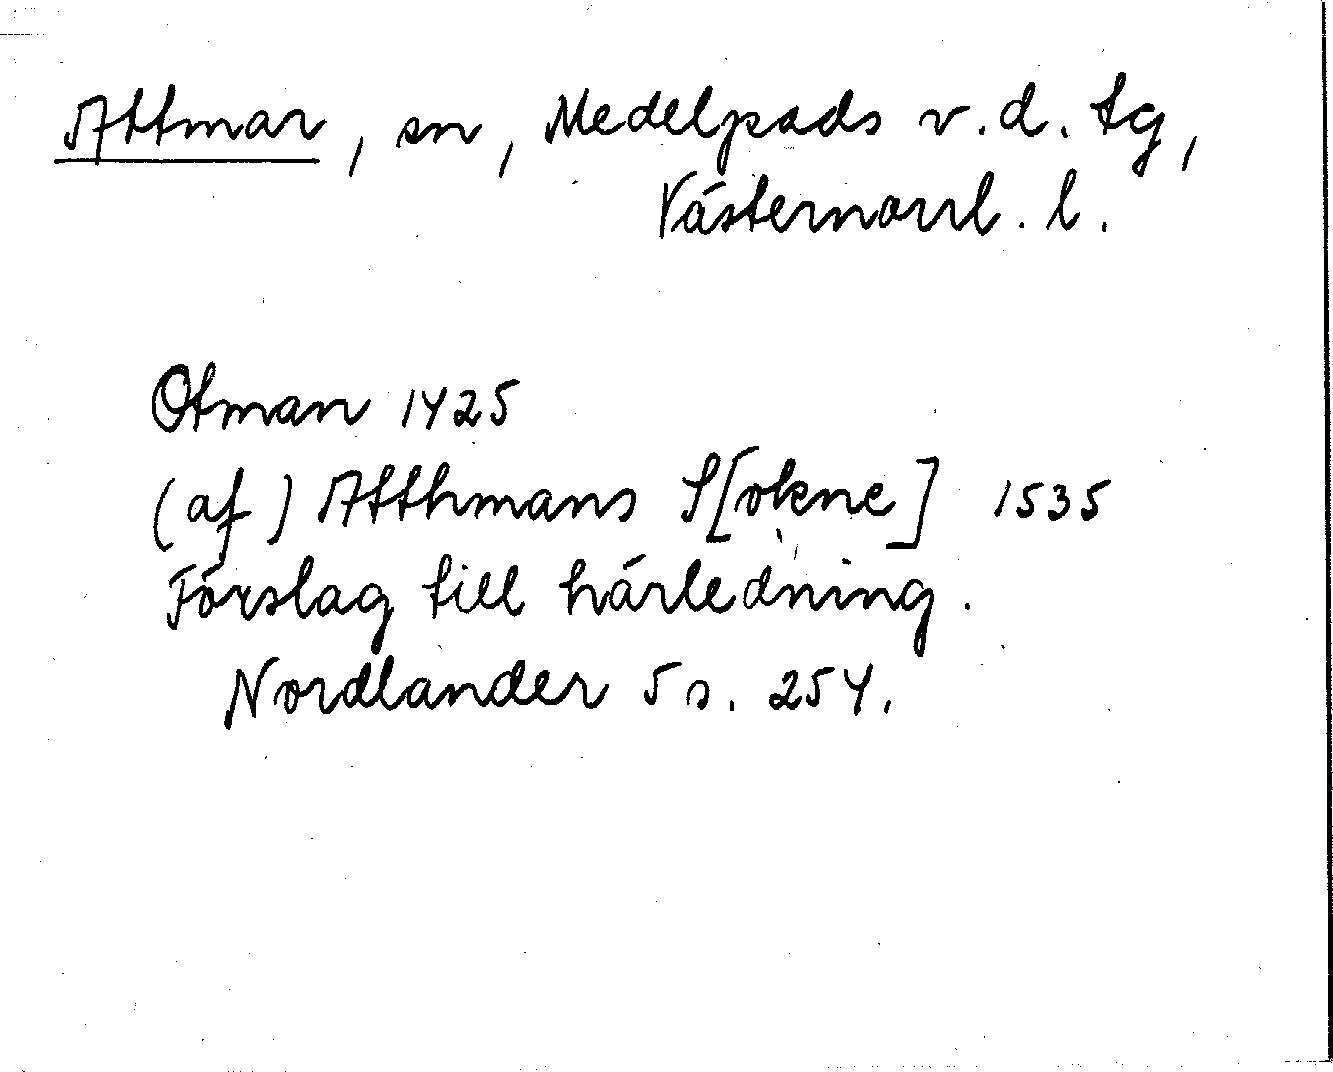 Attmar, sn, Medelpads v.d. tg,
Västernorrl. l.
Otman 1425
(af) Atthmans S[okne] 1535
Förslag till härledning.
Nordlander 5 s. 254.